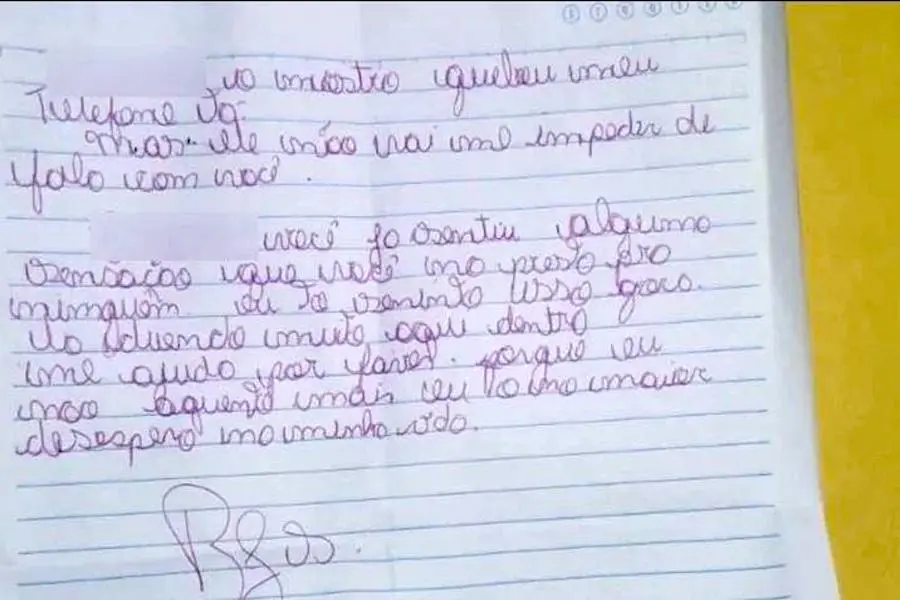 o mostro quebou meu
Telefone Ja.
Mas ele não vai me impeder de
falo com você .
você ja sentiu alguma
sensação que você no presto pro
ninguém eu to senindo isso
to duendo muito aqui dentro
me ajudo por favor. porque eu
não aguento mais eu to no maior
desespero na minha vida.